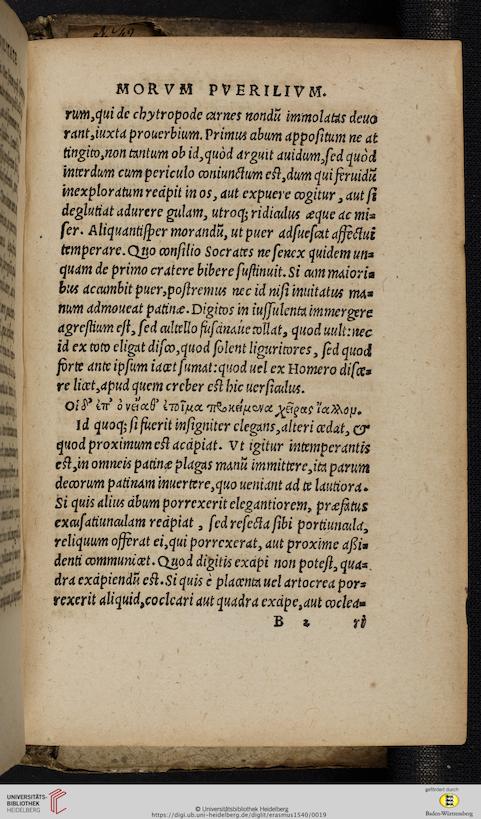 MORVM PVERILIVM.
rum,qui de chytropode carnes nondū immolatas deuo
rant,iuxta prouerbium.Primus abum appositum ne at
tingito,non tantum ob id,quòd arguit auidum,sed quòd
interdum cum periculo coniunctum est,dum qui feruidū
inexploratum reapit in os, aut expuere cogitur, aut si
deglutiat adurere gulam, utroq; ridiculus æque ac mi=
ser. Aliquantisper morandū, ut puer adsuescat affectui
temperare. Quo consilio Socrates ne senex quidem un=
quam de primo cratere bibere sustinuit. Si cum maiori=
bus accumbit puer,postremus nec id nisi inuitatus ma=
num admoueat patinæ. Digitos in iussulenta immergere
agrestium est, sed cultello fuscinaue tollat, quod uult:nec
id ex toto eligat disco,quod solent liguritores, sed quod
forte ante ipsum iacet sumat:quod uel ex Homero disce=
re licet,apud quem creber est hic uersiculus.
Οἱ δ' ἐπ' ὀνείαθ' ἑτοῖμα προκείμενα χεῖρας ἴαλλον.
Id quoq; si fuerit insigniter elegans,alteri cedat, &
quod proximum est accipiat. Vt igitur intemperantis
est,in omneis patinæ plagas manū immittere,ita parum
decorum patinam inuertere,quo ueniant ad te lautiora.
Si quis alius abum porrexerit elegantiorem, præfatus
excusatiunculam recipiat, sed resecta sibi portiuncula,
reliquum offerat ei,qui porrexerat, aut proxime aßi=
denti communicet. Quod digitis excipi non potest, qua=
dra excipiendū est. Si quis è placenta uel artocrea por=
rexerit aliquid,cocleari aut quadra excipe,aut coclea=
B 2 ri
UNIVERSITÄTS-
BIBLIOTHEK
HEIDELBERG
© Universitätsbibliothek Heidelberg
https://digi.ub.uni-heidelberg.de/diglit/erasmus1540/0019
gefördert durch
Baden-Württemberg